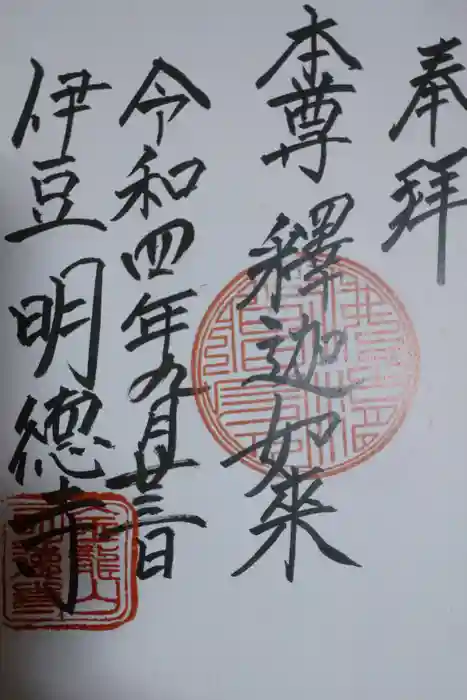 奉拝
本尊 釋迦如來
令和四年九月廿三日
伊豆 明徳寺
金龍山